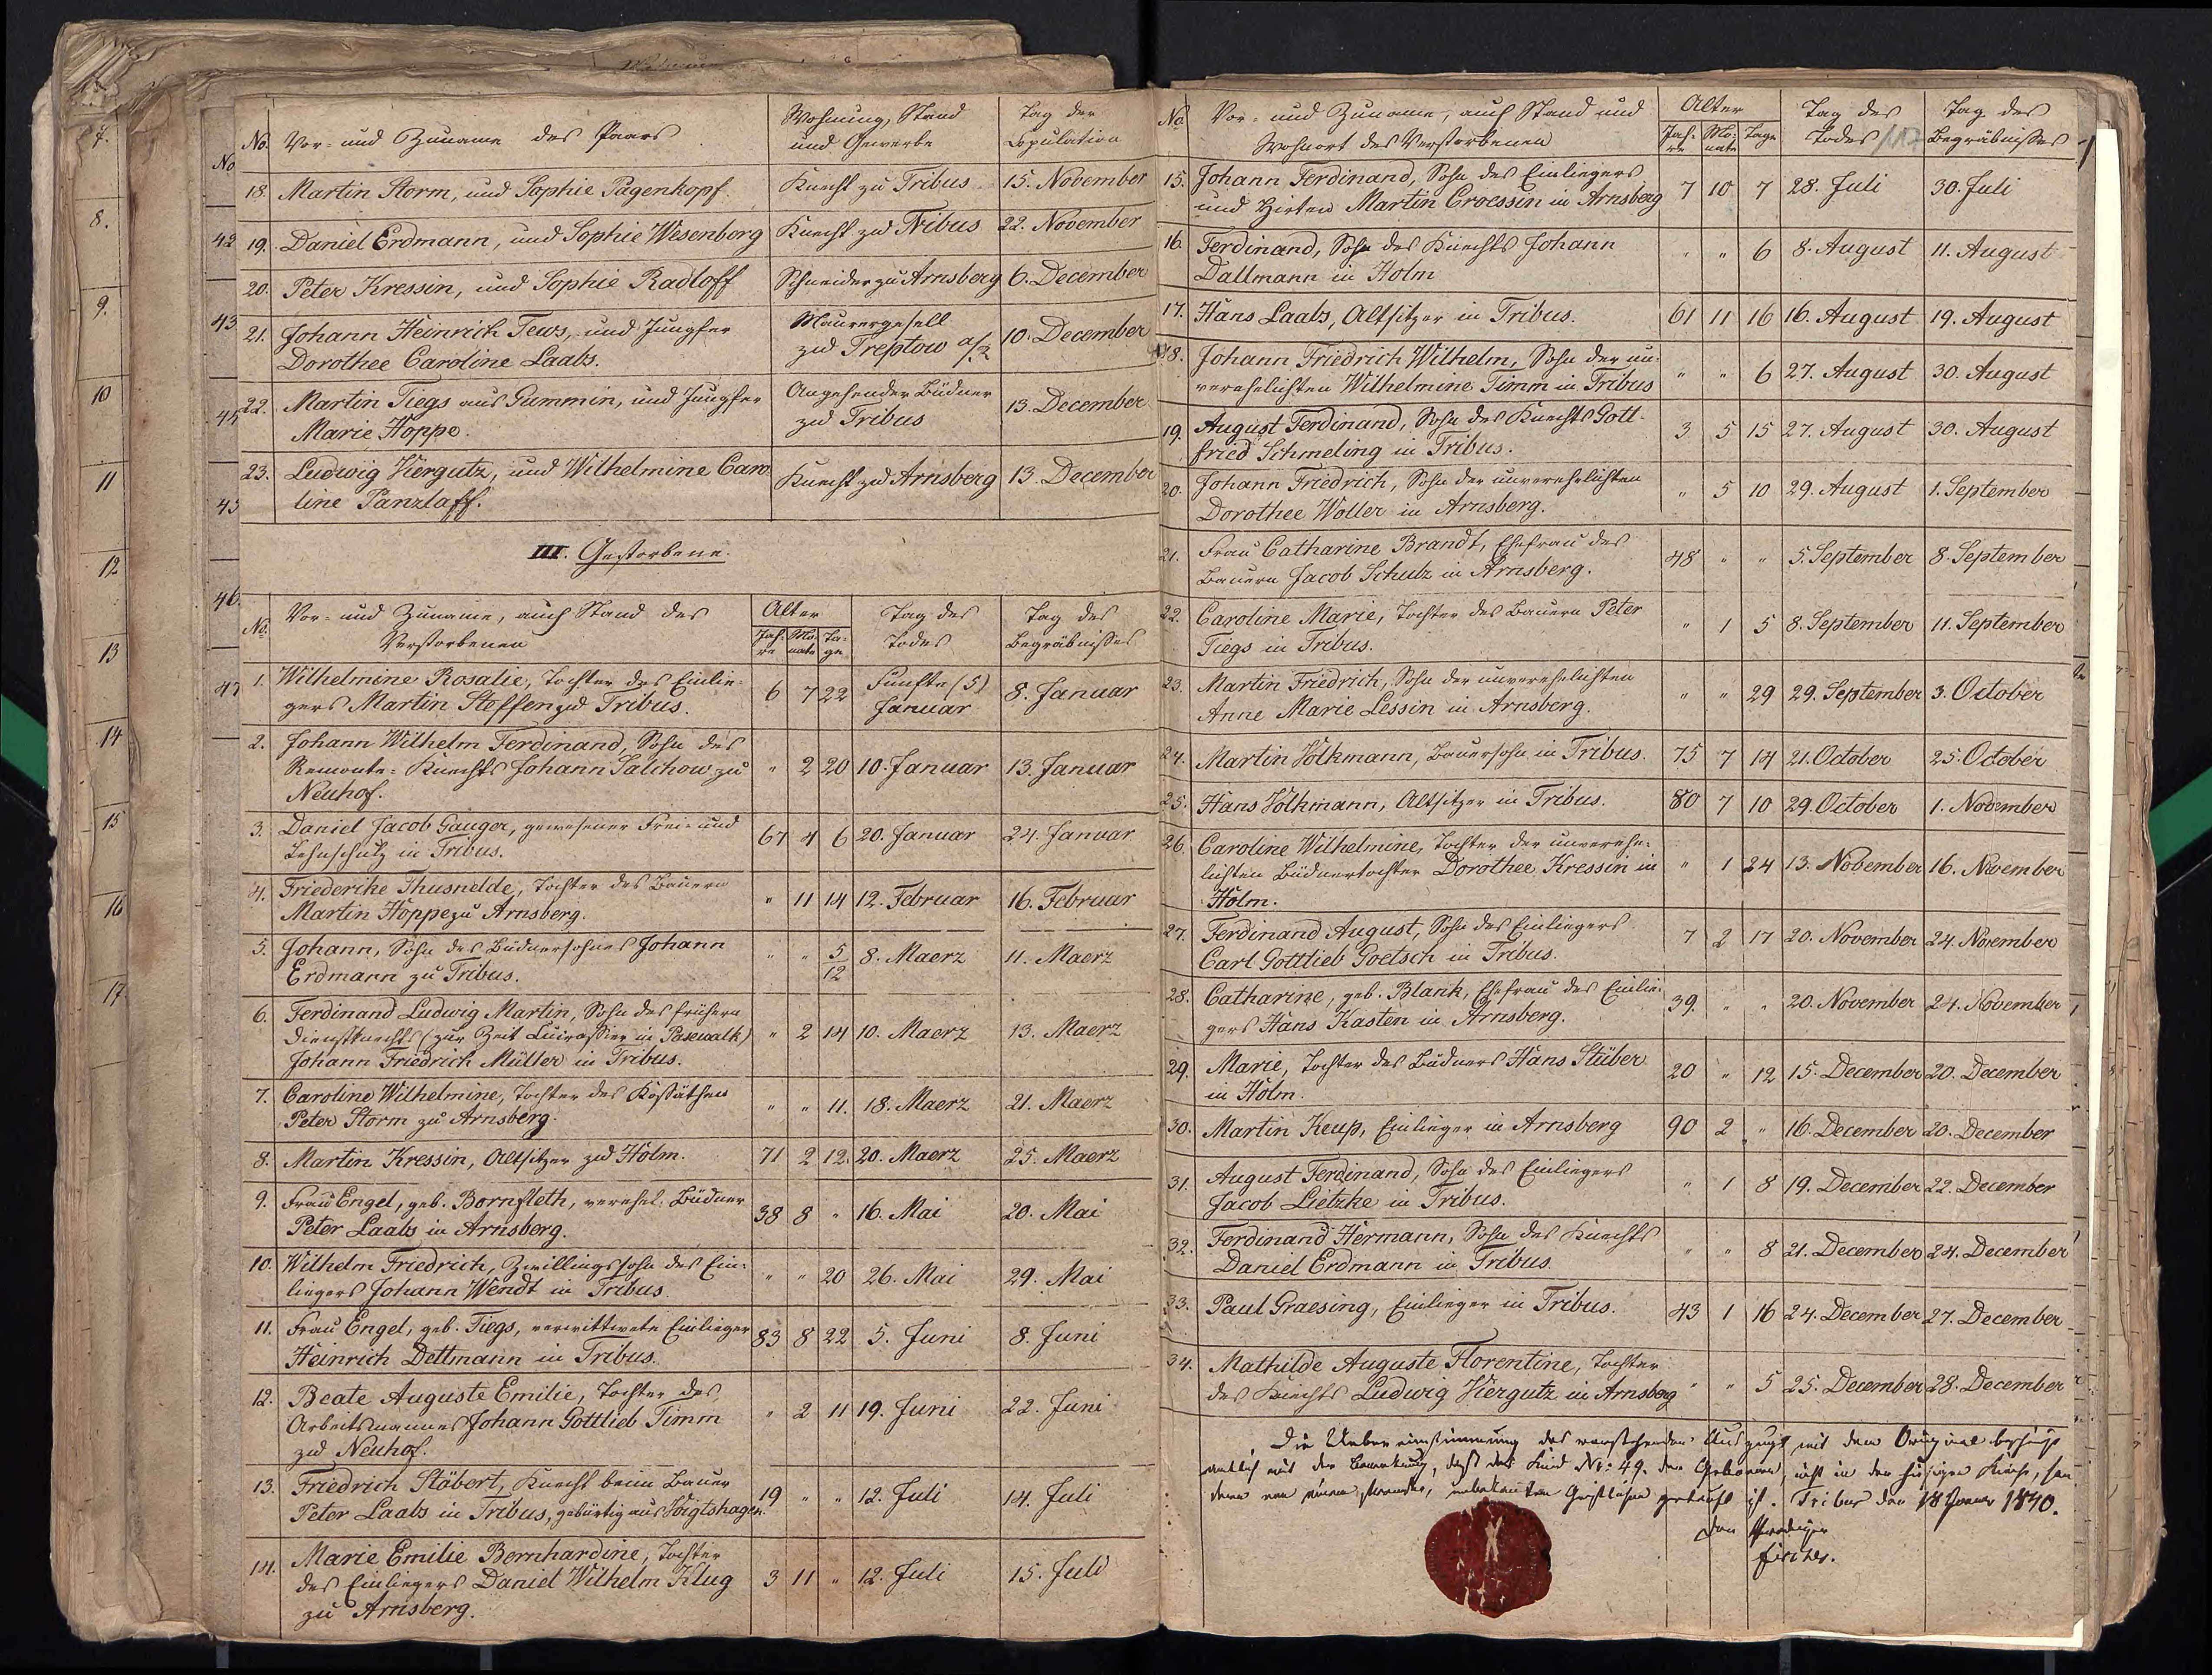 No. Vor- und Zuname des Paars Wohnung, Stand Tag der
und Gewerbe Copulation
18. Martin Storm, und Sophie Pagenkopf. Knecht zu Tribus 15. November
19. Daniel Erdmann, und Sophie Wesenberg Knecht zu Tribus 22. November
20. Peter Kressin, und Sophie Radloff Schneider zu Arnsberg 6. December
21. Johann Heinrich Tews, und Jungfer Maurergesell 10. December
Dorothee Caroline Laabs. zu Treptow a/R
22. Martin Tiegs aus Gummin, und Jungfer Angehender Büdner 13. December
Marie Hoppe. zu Tribus
23. Ludwig Viergutz, und Wilhelmine Caro- Knecht zu Arnsberg 13. December
line Panzlaff.
III. Gestorbene.
No. Vor- und Zuname, auch Stand des Alter Tag des Tag des
Verstorbenen Jah-re Mo-nate Ta-ge Todes Begräbnißes
1. Wilhelmine Rosalie, Tochter des Einlie- 6 7 22 Fünfte (5) 8. Januar
gers Martin Steffen zu Tribus. Januar
2. Johann Wilhelm Ferdinand, Sohn des
Remonte-Knechts Johann Salchow zu " 2 20 10. Januar 13. Januar
Neuhof.
3. Daniel Jacob Gauger, gewesener Frei- und 67 4 6 20. Januar 24. Januar
Lehnschulz in Tribus.
4. Friederike Thusnelde, Tochter des Bauern " 11 14 12. Februar 16. Februar
Martin Hoppe zu Arnsberg.
5. Johann, Sohn des Büdnersohnes Johann " " 5/12 8. Maerz 11. Maerz
Erdmann zu Tribus.
6. Ferdinand Ludwig Martin, Sohn des frühern
Dienstknechts (zur Zeit Cuirassier in Pasewalk) " 2 14 10. Maerz 13. Maerz
Johann Friedrich Müller in Tribus.
7. Caroline Wilhelmine, Tochter des Kossäthen " " 11. 18. Maerz 21. Maerz
Peter Storm zu Arnsberg.
8. Martin Kressin, Altsitzer zu Holm. 71 2 12. 20. Maerz 25. Maerz
9. Frau Engel, geb. Bornfleth, verehel. Büdner 38 8 " 16. Mai 20. Mai
Peter Laabs in Arnsberg.
10. Wilhelm Friedrich, Zwillingssohn des Ein- " " 20 26. Mai 29. Mai
liegers Johann Wendt in Tribus.
11. Frau Engel, geb. Tiegs, verwittwete Einlieger 83 8 22 5. Juni 8. Juni
Heinrich Dettmann in Tribus.
12. Beate Auguste Emilie, Tochter des
Arbeitsmannes Johann Gottlieb Timm " 2 11 19. Juni 22. Juni
zu Neuhof.
13. Friedrich Stöbert, Knecht beim Bauer 19 " " 12. Juli 14. Juli
Peter Laabs in Tribus, gebürtig aus Voigtshagen.
14. Marie Emilie Bernhardine, Tochter
des Einliegers Daniel Wilhelm Klug 3 11 " 12. Juli 15. Juli
zu Arnsberg.
No Vor- und Zuname, auch Stand und Alter Tag des Tag des
Wohnort des Verstorbenen Jah-re Mo-nate Tage Todes Begräbnißes
15. Johann Ferdinand, Sohn des Einliegers 7 10 7 28. Juli 30. Juli
und Hirten Martin Croessin in Arnsberg
16. Ferdinand, Sohn des Knechts Johann " " 6 8. August 11. August
Dallmann in Holm
17. Hans Laabs, Altsitzer in Tribus. 61 11 16 16. August 19. August
18. Johann Friedrich Wilhelm, Sohn der un- " " 6 27. August 30. August
verehelichten Wilhelmine Timm in Tribus
19. August Ferdinand, Sohn des Knechts Gott- 3 5 15 27. August 30. August
fried Schmeling in Tribus.
20. Johann Friedrich, Sohn der unverehelichten " 5 10 29. August 1. September
Dorothee Woller in Arnsberg.
21. Frau Catharine Brandt, Ehefrau des 48 " " 5. September 8. September
Bauern Jacob Schulz in Arnsberg.
22. Caroline Marie, Tochter des Bauern Peter " 1 5 8. September 11. September
Tiegs in Tribus.
23. Martin Friedrich, Sohn der unverehelichten " " 29 29. September 3. October
Anne Marie Lessin in Arnsberg.
24. Martin Volkmann, Bauersohn in Tribus. 75 7 14 21. October 25. October
25. Hans Volkmann, Altsitzer in Tribus. 80 7 10 29. October 1. November
26. Caroline Wilhelmine, Tochter der unverehe-
lichten Büdnertochter Dorothee Kressin in " 1 24 13. November 16. November
Holm.
27. Ferdinand August, Sohn des Einliegers 7 2 17 20. November 24. November
Carl Gottlieb Goetsch in Tribus.
28. Catharine, geb. Blank, Ehefrau des Einlie- 39. " " 20. November 24. November
gers Hans Kasten in Arnsberg.
29. Marie, Tochter des Büdners Hans Stüber 20 " 12 15. December 20. December
in Holm.
30. Martin Keup, Einlieger in Arnsberg 90 2 " 16. December 20. December
31. August Ferdinand, Sohn des Einliegers " 1 8 19. December 22. December
Jacob Lietzke in Tribus.
32. Ferdinand Hermann, Sohn des Knechts " " 8 21. December 24. December
Daniel Erdmann in Tribus
33. Paul Graesing, Einlieger in Tribus. 43 1 16 24. December 27. December
34. Mathilde Auguste Florentine, Tochter
des Knechts Ludwig Viergutz in Arnsberg " " 5 25. December 28. December
Die Uebereinstimmung des vorstehenden Auszugs mit dem Original bescheinigt
amtlich mit der Bemerkung, daß das Kind No. 49. der Geborenen, nicht in der hiesigen Kirche, son
dern von einem fremden, unbekannten Geistlichen getauft ist. Tribus den 18 Januar 1840.
Der Prediger
Fischer.
7.
8.
9.
10
11
12
13
14
15
16
17.
No
42
43
44
45
46.
47